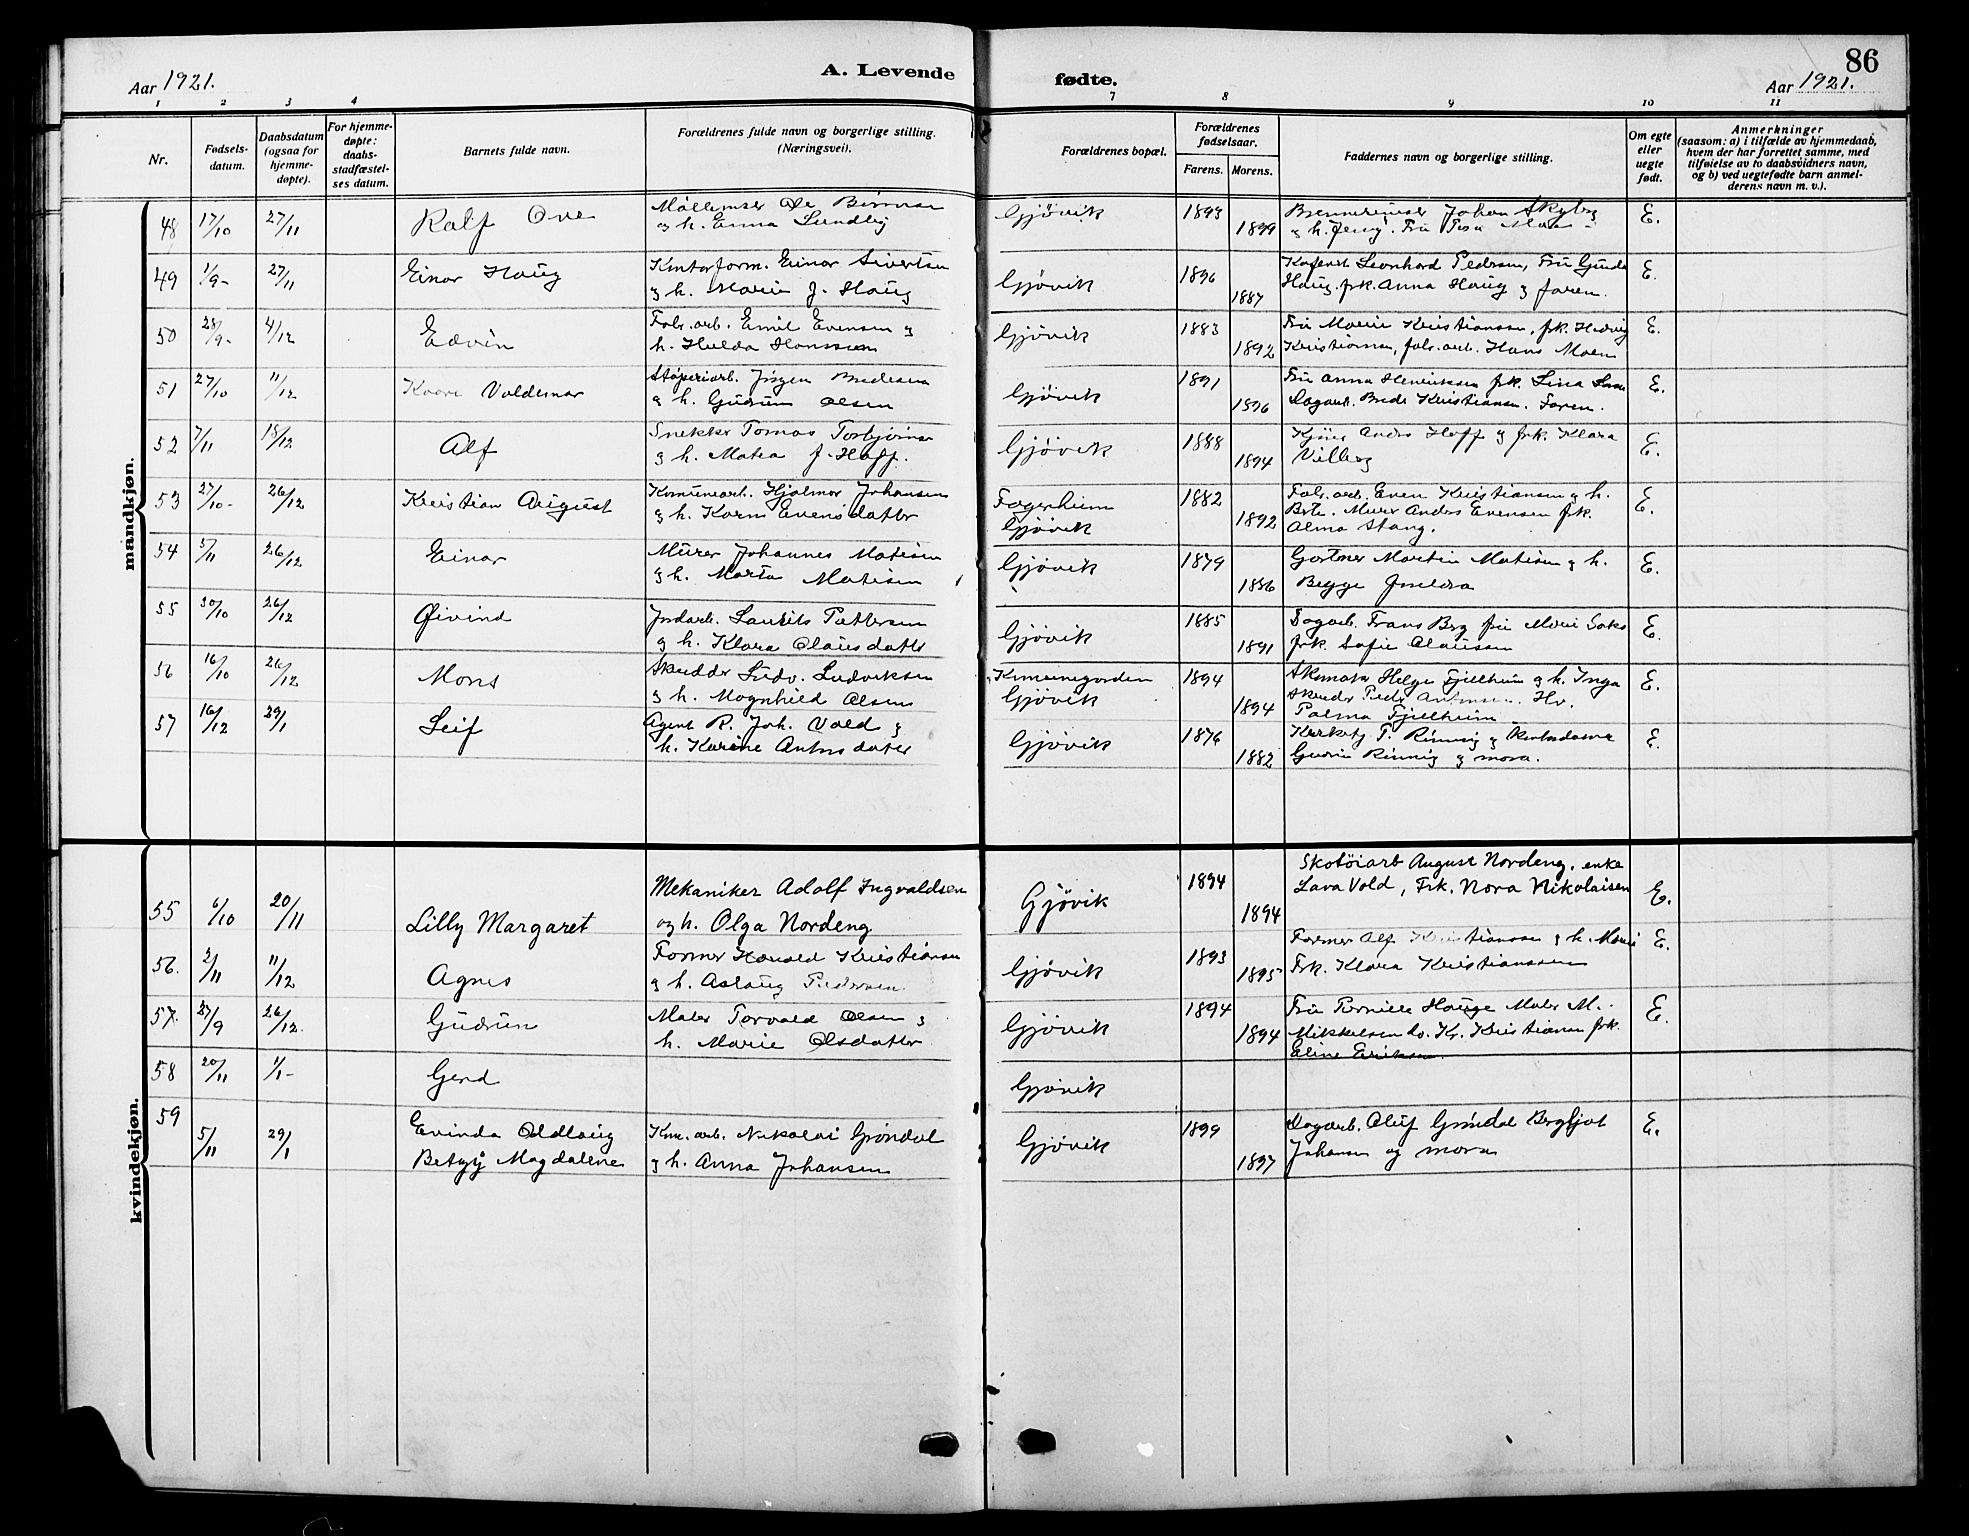 86
Aar 1921.
A. Levende fødte.
Aar 1921.
1 2 3 4 7 8 9 10 11
Nr.
Fødsels-
datum.
Daabsdatum
(ogsaa for
hjemme-
døpte).
For hjemme-
døpte:
daabs-
stadfæstel-
ses datum.
Barnets fulde navn.
Forældrenes fulde navn og borgerlige stilling.
(Næringsvei).
Forældrenes bopæl.
Forældrenes
fødselsaar.
Farens. Morens.
Faddernes navn og borgerlige stilling.
Om egte
eller
uegte
født.
Anmerkninger
(saasom: a) i tilfælde av hjemmedaab,
hvem der har forrettet samme, med
tilføielse av to daabsvidners navn,
og b) ved uegtefødte barn anmel-
derens navn m. v.).
mandkjøn.
48 17/10 27/11 Ralf Ove
og h. Emma Lundby
Gjøvik 1893 1899
Johan Skyberg
og h. Jenny. Fru
E.
49 1/9- 27/11 Einar Haug
Kontorform. Einar Sivertsen
og h. Marie J. Haug
Gjøvik 1896 1887
Leonhard Pedersen, Fru Gunda
Haug. frk. Anna Haug og faren.
E.
50 28/9- 4/12 Edvin
Fabr. arb. Emil Evensen og
h. Hulda Hanssen
Gjøvik 1883 1892
Fru Marie Kristiansen, frk. Hedvig
Kristiansen, fabr. arb. Hans Moen
E.
51 27/10 11/12 Kaare Valdemar
Støperiarb. Jørgen Bredesen
og h. Gudrun Olsen
Gjøvik 1891 1896
Fru Anna Henriksen frk. Lina
Dagarb. Brede Kristiansen. Faren.
E.
52 7/11 18/12 Alf
Snekker Tomas Torbjørnsen
og h. Matea J. Hoff.
Gjøvik 1888 1894
Anders Hoff og frk. Klara
Vilberg
E.
53 27/10- 26/12 Kristian August
Komunearb. Hjalmar Johansen
og h. Karen Evensdatter
Fagerheim
Gjøvik 1882 1892
Fabr. arb. Even Kristiansen og h.
Berte. Murer Anders Evensen frk.
Alma Stang.
E.
54 5/11 26/12 Einar
Murer Johannes Matisen
og h. Marta Matisen
Gjøvik 1879 1886
Gartner Martin Matisen og h.
Begge foreldra
E.
55 30/10 26/12 Øivind
Jordarb. Laurits Pettersen
og h. Klara Olausdatter
Gjøvik 1885 1891
Dagarb. Frans Berg fru Marie Saks
frk. Sofie Olaussen
E.
56 16/10 26/12 Mons
Skrædder Ludv. Ludviksen
og h. Magnhild Olsen
Komunegarden
Gjøvik 1894 1894
Skomaker Helge Fjellheim og h. Inga
Skrædder Peder Antonsen. Hv.
Palma Fjellheim
E.
57 16/12 29/1 Leif
Agent R. Joh. Vold og
h. Karine Antonsdatter
Gjøvik 1876 1882
T. Rønnig og
Gudrun Rønnig og mora.
E.
kvindekjøn.
55 6/10 20/11 Lilly Margaret
Mekaniker Adolf Ingvaldsen
og h. Olga Nordeng
Gjøvik 1894 1894
Skotøiarb August Nordeng, enke
Lava Vold, Frk. Nora Nikolaisen
E.
56. 2/11 11/12 Agnes
Former Harald Kristiansen
og h. Aslaug Pedersen
Gjøvik 1893 1895
Former Alf Kristiansen og h. Marie
Frk. Klara Kristianssen
E.
57. 27/9 26/12. Gudrun
Maler Torvald Olsen og
h. Marie Olsdatter
Gjøvik 1894 1894
Fru Pernille Hauge Maler M.
Mikkelsen do. Kr. Kristiansen frk.
Eline Eriksen.
E.
58 20/11 1/1- Gerd
Gjøvik
59 5/11 29/1 Evinda Oddlaug
Betzy Magdalene
Kom. arb. Nikolai Grøndal
og h. Anna Johansen
Gjøvik 1899 1897
Dagarb. Oluf Grøndal Bergljot
Johansen og mora
E.